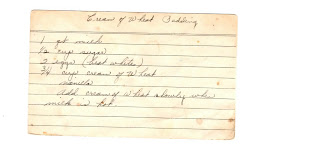 Cream of Wheat Pudding
1 qt milk
1/2 cup sugar
2 eggs (beat whites)
3/4 cup cream of Wheat
vanilla
Add cream of Wheat slowly when
milk is hot.